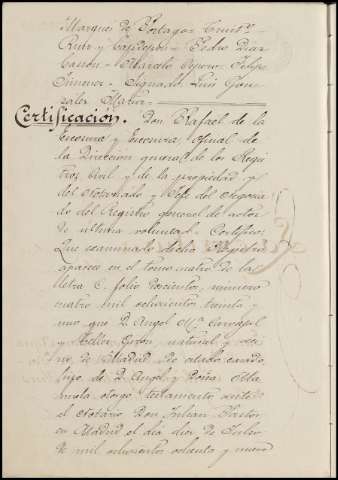 Marques de Portago= Trinito
Ruiz y Capillepón= Pedro Diaz
Cassou= Marcelo Cepero= Felipe
Jimenez= Signado, Luis Gon-
zales Martin=
Certificación. Don Rafael de la
Escosura y Escosura, oficial de
la Dirección general de los Regis
tros Civil y de la propiedad y
del Notariado y Jefe del Negocia
do del Registro general de actos
de ultima voluntad= Certifico:
Que examinado dicho Registro
aparece en el tomo cuatro de la
letra C. folio doscientos, número
cuatro mil ochocientos treinta y
uno que D. Angel Mª Carvajal
y Tellez Giron, natural y veci
no de Madrid de estado casado
hijo de D. Angel y Doña Ma
nuela otorgó testamento ante
el Notario Don Julian Pastor,
en Madrid el dia dos de Julio
de mil ochocientos ochenta y nueve